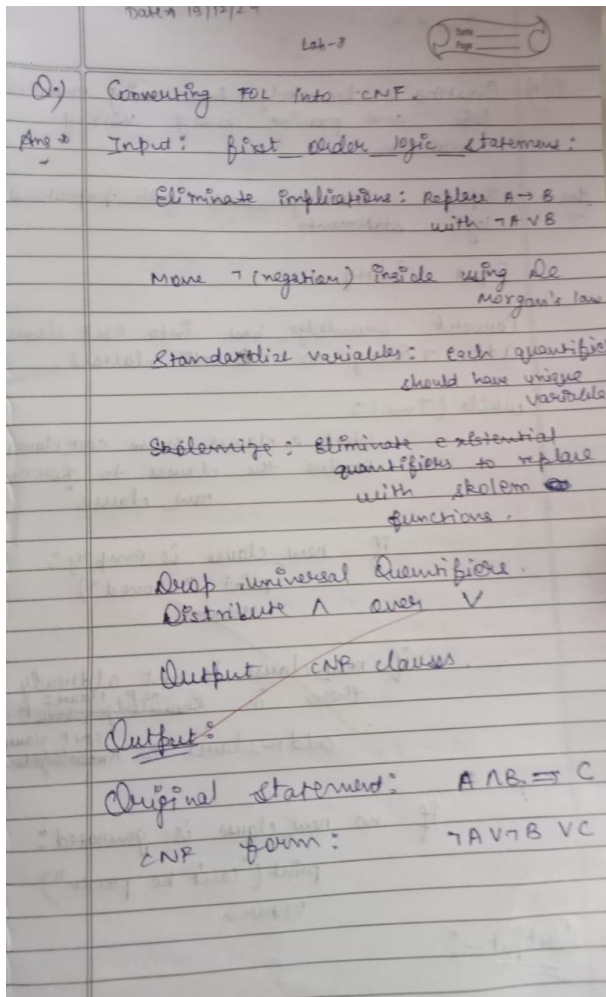 Date 19/12/24
Lab-8
Date
Page
Q.) Converting FOL into CNF.
Ans Input: first_order_logic_statement:
Eliminate implications: Replace A→B
with ¬A∨B
Move ¬ (negation) inside using De
Morgan's law
Standardize variables: each quantifie
should have unique
variable
Skolemize: Eliminate existential
quantifiers to replace
with skolem
functions.
Drop universal Quantifiers.
Distribute ∧ over ∨
Output CNF clauses
Output:
Original statement: A∧B ⇒ C
CNF form: ¬A∨¬B∨C